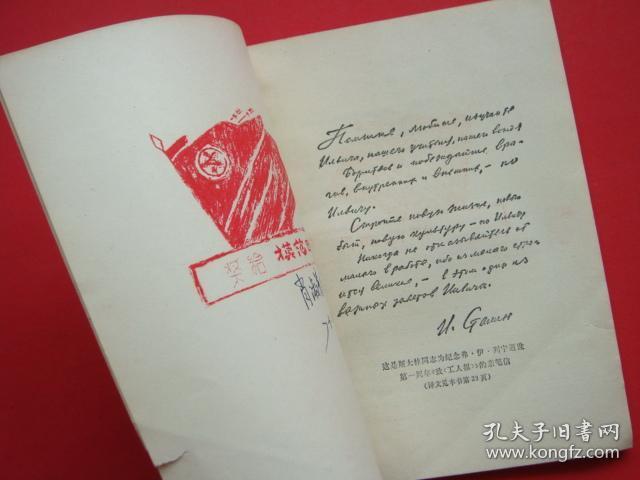 奖给
模范
Помните, любите, изучайте
Ильича, нашего учителя, нашего вождя.
Боритесь и побеждайте вра-
гов, внутренних и внешних, – по
Ильичу.
Стройте новую жизнь, новый
быт, новую культуру – по Ильичу.
Никогда не отказывайтесь от
малого в работе, ибо из малого строит-
ся великое, – в этом один из
важных заветов Ильича.
И. Сталин
这是斯大林同志为纪念弗·伊·列宁逝世
第一周年《致〈工人报〉》的亲笔信
（译文见本书第23页）
孔夫子旧书网
www.kongfz.com